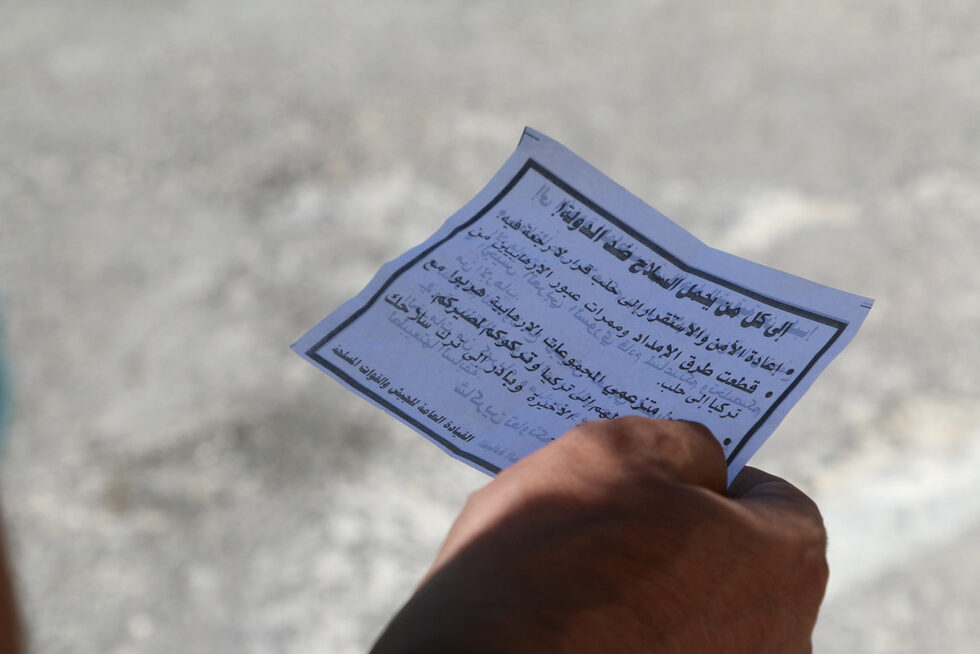 إلى كل من يحمل السلاح ضد الدولة!
• إعادة الأمن والاستقرار إلى حلب قرار لا رجعة فيه.
• قطعت طرق الإمداد وممرات عبور الإرهابيين من
تركيا إلى حلب.
متزعمي المجموعات الإرهابية هربوا مع
إلى تركيا وتركوكم لمصيركم.
الأخيرة وبادر إلى ترك سلاحك
القيادة العامة للجيش والقوات المسلحة